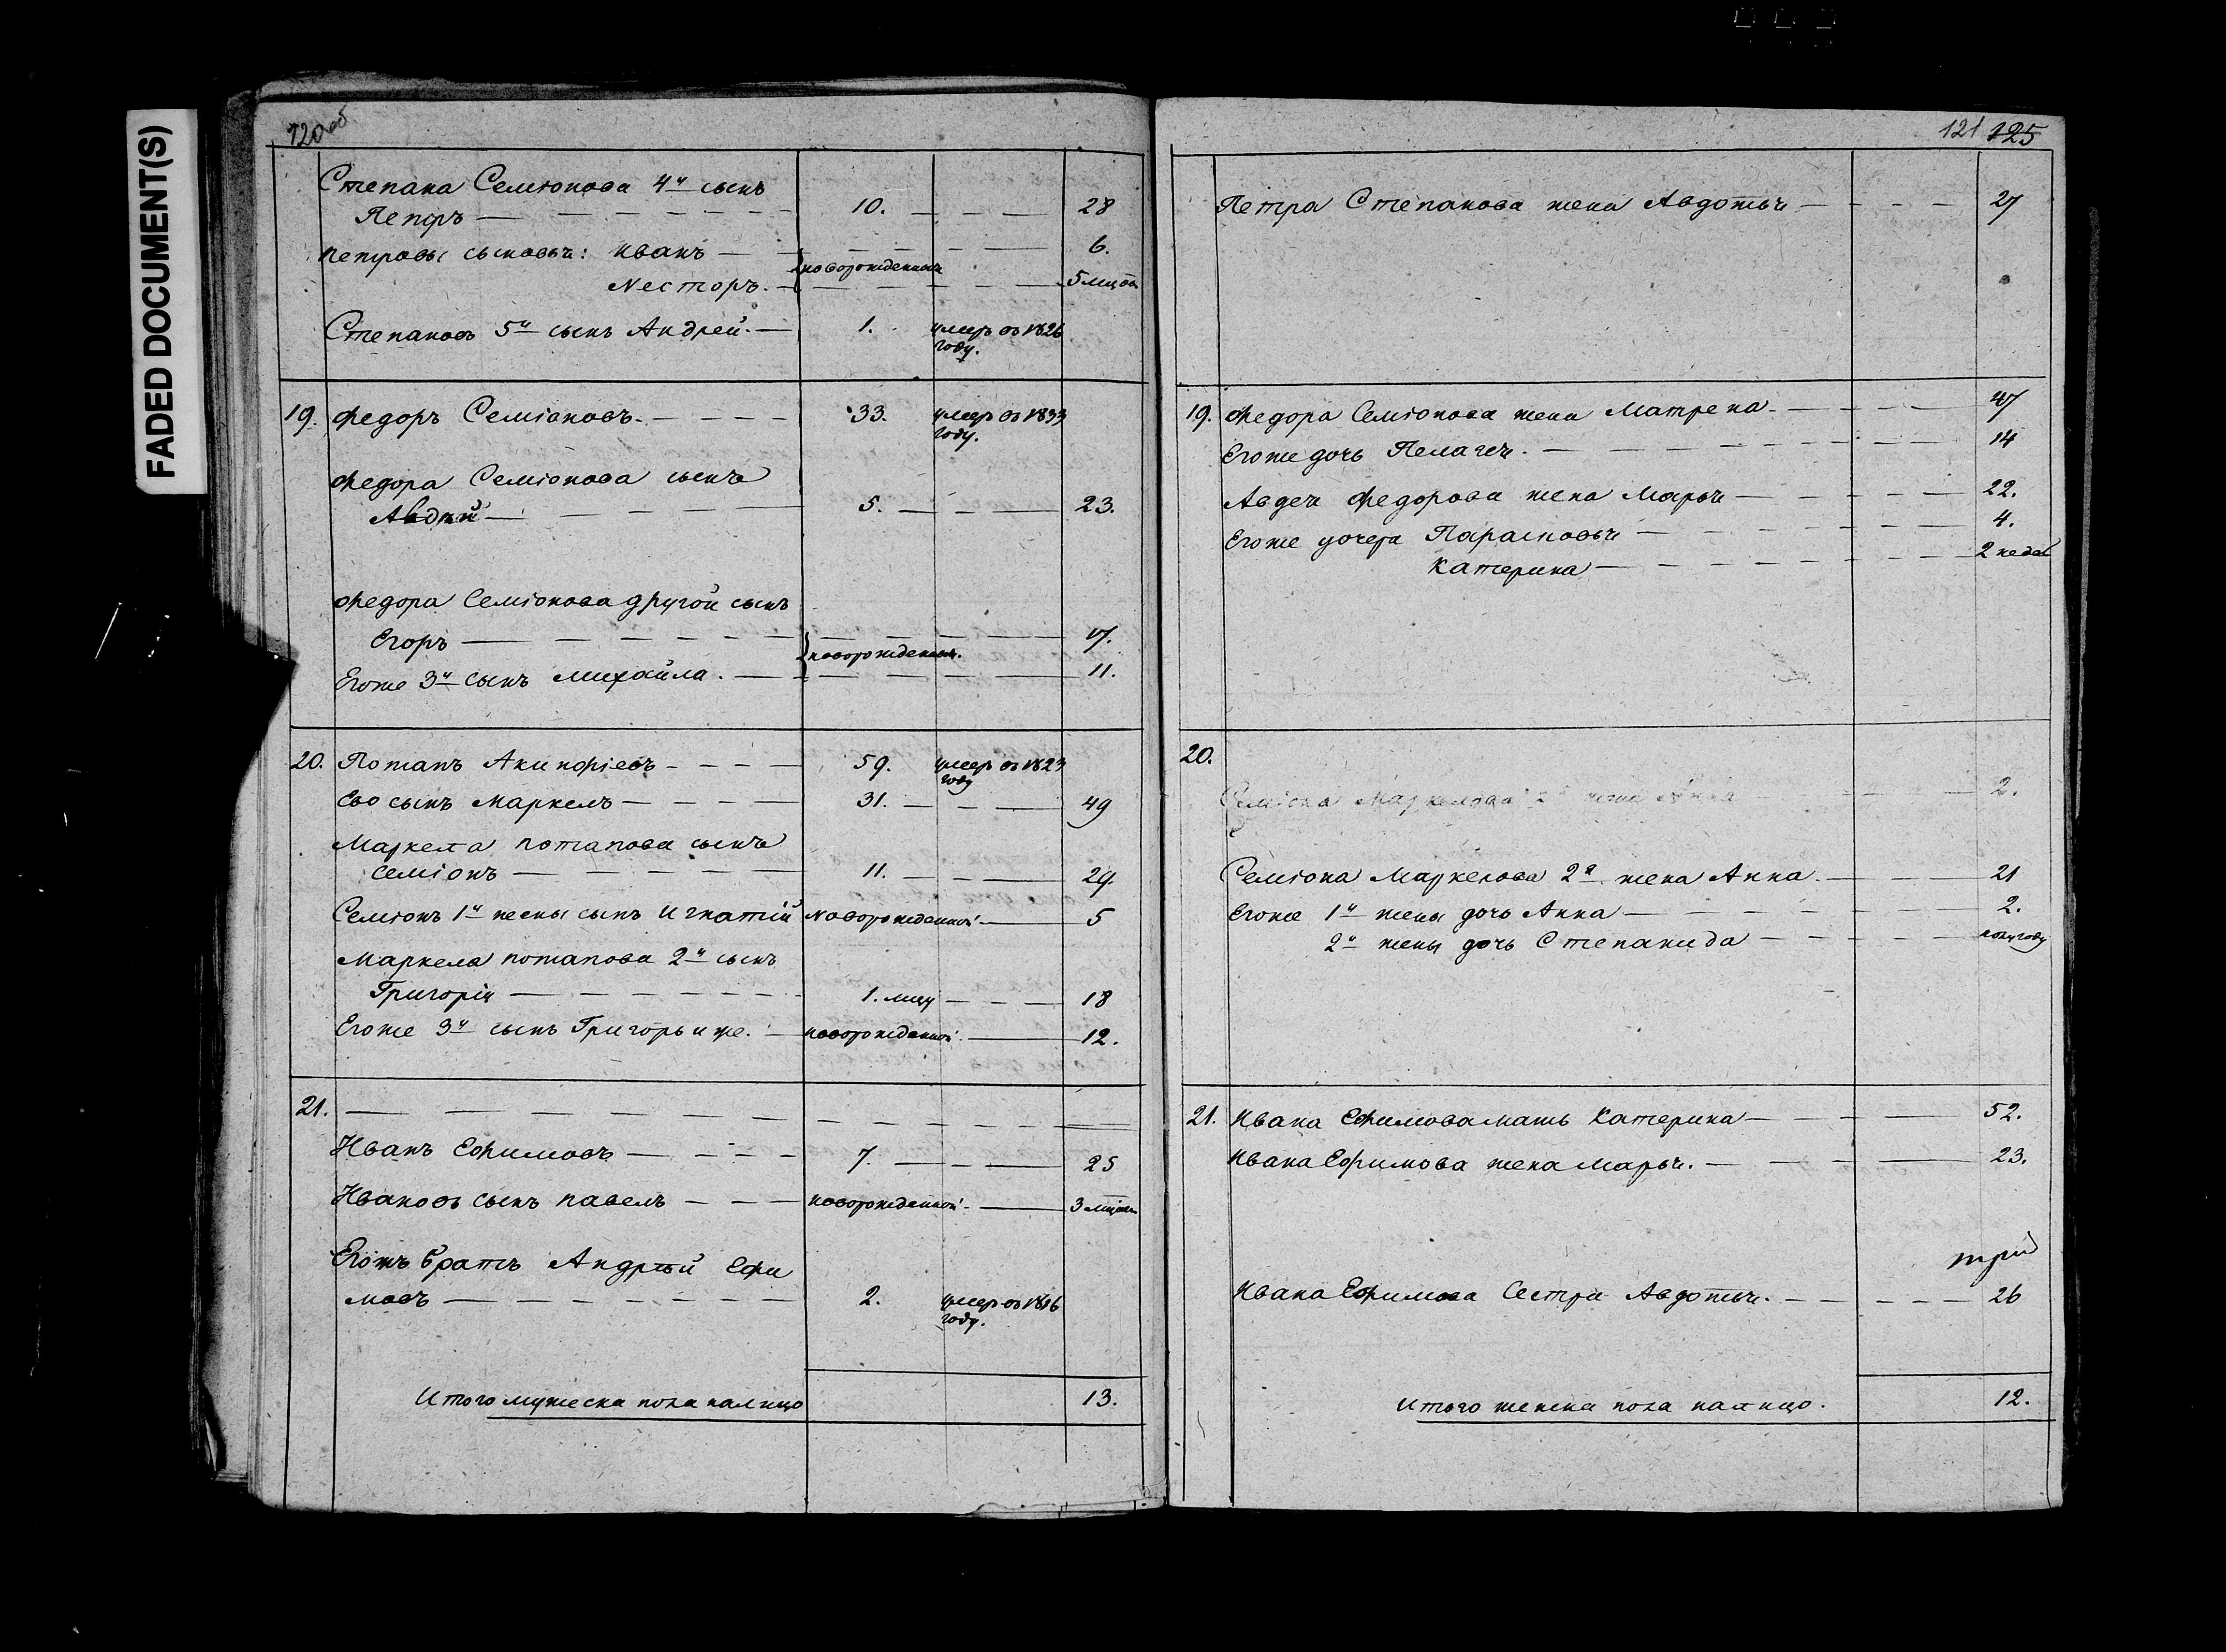 FADED DOCUMENT(S)
120 об
Степана Семіонова 4й сынъ
Петръ — 10. — 28
Петровы сыновья: Иванъ — 6.
новорожденныя
Несторъ. — 5 мцов
Степановъ 5й сынъ Андрей. — 1. умеръ въ 1826
году.
19. Федоръ Семіоновъ. — 33. умеръ въ 1833
году.
Федора Семіонова сынъ
Авдѣй — 5. — 23.
Федора Семіонова другой сынъ
Егоръ — 17.
новорожденныя.
Егоже 3й сынъ Михайла. — 11.
20. Потапъ Акинфіевъ — 59. умеръ въ 1823
году
Ево сынъ Маркелъ — 31. — 49
Маркела Потапова сынъ
Семіонъ — 11. — 29.
Семіонъ 1й жены сынъ Игнатій новорожденной — 5
Маркела Потапова 2й сынъ
Григорій — 1. мцу — 18
Егоже 3й сынъ Григорьи же. — новорожденной. — 12.
21. —
Иванъ Ефимовъ — 7. — 25
Ивановъ сынъ Павелъ — новорожденной. — 3 мцовъ
Егожъ братъ Андрѣй Ефи
мовъ — 2. умеръ въ 1816
году.
Итого мужеска пола налицо 13.
121 125
Петра Степанова жена Авдотья — 27
19. Федора Семіонова жена Матрена — 47
Егоже дочь Пелагея. — 14
Авдея Федорова жена Марья — 22.
Егоже дочера Парасковья — 4.
Катерина — 2 недел
20.
Семіона Маркелова 2я жена Анна — 2.
Семіона Маркелова 2я жена Анна. — 21
Егоже 1й жены дочь Анна — 2.
2й жены дочь Степанида — полугоду
21. Ивана Ефимова мать Катерина — 52.
Ивана Ефимова жена Марья. — 23.
три
Ивана Ефимова сестра Авдотья. — 26
Итого женска пола налицо. 12.